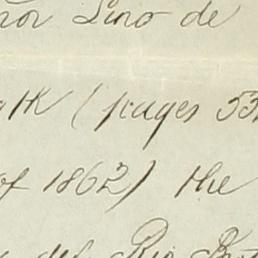 Lino de
(pages 53
of 1862) the
del Rio